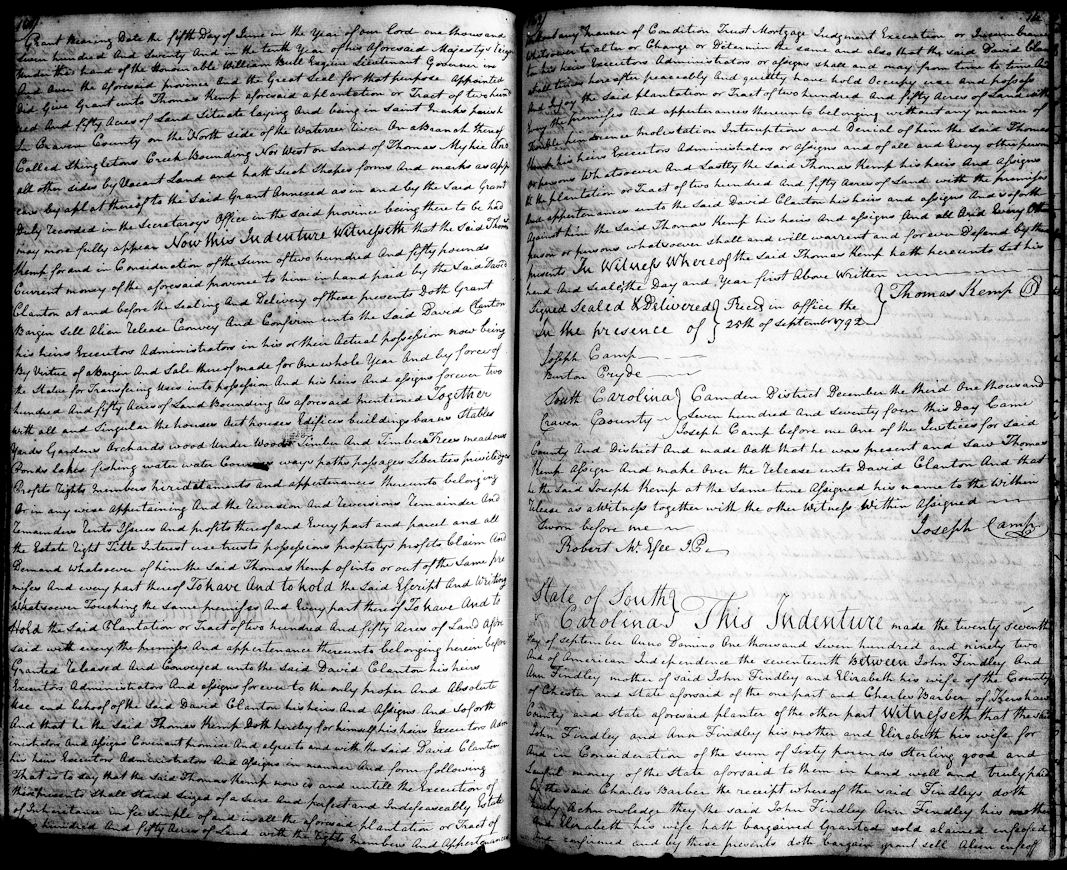 Grant Bearing Date the fifth Day of June in the Year of our lord one thousand
Seven hundred And Seventy And in the tenth Year of his Aforesaid Majestys Reign
Under the hand of the Honourable William Bull Esquire Lieutenant Governor in
And Over the aforesaid province And the Great Seal for that purpose Appointed
Did Give Grant unto Thomas Kemp aforesaid a plantation or Tract of two hund
red And fifty Acres of Land Situate laying And being in Saint Marks parish
In Craven County on the North side of the Wateree River On a Branch thereof
Called Shingletons Creek Bounding Nor West on Land of Thomas And
all other sides by Vacant Land and hath Such Shapes forms And marks as App
ears by a plat thereof to the Said Grant Annexed as in and by the Said Grant
Duly Recorded in the Secretarys Office in the said province being there to be had
may more fully appear Now this Indenture Witnesseth that the Said Thoms
Kemp for and in Consideration of the Sum of two hundred And fifty pounds
Current money of the aforesaid province to him in hand paid by the Said David
Clanton at and before the Sealing And Delivery of these presents Doth Grant
Bargin Sell Alien Release Convey And Confirm unto the Said David Clanton
his heirs Executors Administrators in his or their Actual possession now being
By Virtue of a Bargin And Sale thereof made for One whole Year And by force of
the Statue for Transfering Uses into possession And his heirs And assigns forever two
hundred And fifty Acres of Land Bounding As aforesaid mentioned Together
with all and Singular the houses Out houses Edifices buildings barns Stables
Yards Gardens Orchards wood Under Woods Timber And Timber Trees meadows
Ponds Lakes fishing water water Courses ways paths passages Liberties privileges
Profits Rights members hiredataments and appertenances thereunto belonging
Or in any wise appertaining And the Reversion And Reversions Remainder And
Remainders Rents Issues And profits thereof and Every part and parcel and all
the Estate Right Title Interest use trusts possessions propertys profits Claim And
Demand whatsoever of him the said Thomas Kemp of into or out of the Same pre
mises And every part there of To have And to hold the Said And Writing
Whatsoever Touching the Same premises And Every part there of To have And to
Hold the Said Plantation or Tract of two hundred And fifty Acres of Land afore
said with every the premises And appertenance thereunto belonging herein before
Granted Released And Conveyed unto the Said David Clanton his heirs
Executors Administrators And assigns forever to the only proper And Absolute
Use and behoof of the Said David Clanton his heirs And Assigns And So forth
And that he the Said Thomas Kemp Doth hereby for himself his heirs Executors Adm
inistrators And Assigns Covenant promise And agree to and with the Said David Clanton
his heirs Executors Administrators And Assigns in manner And form following
That is to say that the Said Thomas Kemp now is and untill the Execution of
these presents Shall Stand Seized of a Sure And perfect and Indefeasceably Estate
of Inheritance in fee Simple of and in all the aforesaid plantation or Tract of
two hundred And fifty Acres of Land with the Rights Members And Appertenances
without any Manner of Condition Trust Mortgage Judgment Execution or Incumbrance
Whatsoever to alter or Change or Determin the same and also that the said David Clanton
his heirs Executors Administrators or assigns shall and may from time to time And
at all times hereafter peaceably and quietly have hold Occupy use and possess
And Injoy the said plantation or Tract of two hundred And fifty Acres of Land with
Every the premises And appertenances thereunto belonging without any manner of
Trouble hindrance molestation Interuptions and Denial of him the said Thomas
Kemp his heirs Executors Administrators or assigns and of all and Every other person
or persons Whatsoever And Lastly the Said Thomas Kemp his heirs And Assigns
the plantation or Tract of two hundred And fifty Acres of Land with the premises
And appertenances unto the Said David Clanton his heirs and assigns And So forth
Against him the Said Thomas Kemp his heirs And Assigns And all And Every Other
person or persons whatsoever shall and will warrent and forever Defend by these
presents In Witness Whereof the Said Thomas Kemp hath hereunto Set his
hand And Seal the Day and Year first Above Written
Signed Sealed & Delivered Reced in office the Thomas Kemp
In the presence of 25th of September 1792
Joseph Camp
Burton Pryde
South Carolina Camden District December the third One thousand
Craven County Seven hundred And Seventy four this Day Came
Joseph Camp before me One of the Justices for said
County And District And made Oath that he was present and Saw Thomas
Kemp Assign And make Over the Release unto David Clanton And that
he the Said Joseph Kemp at the Same time Assigned his name to the Within
Release as a Witness together with the other Witness Within Assigned
Sworn before me Joseph Camp
Robert J.P.
State of South
Carolina This Indenture made the twenty seventh
day of september Anno Domino One thousand seven hundred and ninety two
And of American Independence the seventeenth Between John Findley And
Ann Findley mother of said John Findley and Elizabeth his wife of the County
of Chester and State aforsaid of the one part and Charles Barber of Kershaw
County and state aforsaid planter of the other part Witnesseth that the said
John Findley and Ann Findley his mother and Elizabeth his wife for
And in Consideration of the sum of sixty pounds Sterling good and
Lawful money of the State aforsaid to them in hand well and truly paid
by the said Charles Barber the receipt whereof the said Findleys doth
hereby Acknowledge they the said John Findley Ann Findley his mother
and Elizabeth his wife hath bargained Granted sold aliened enfeofed
and confirmed and by these presents doth bargain grant sell Alien enfeoff